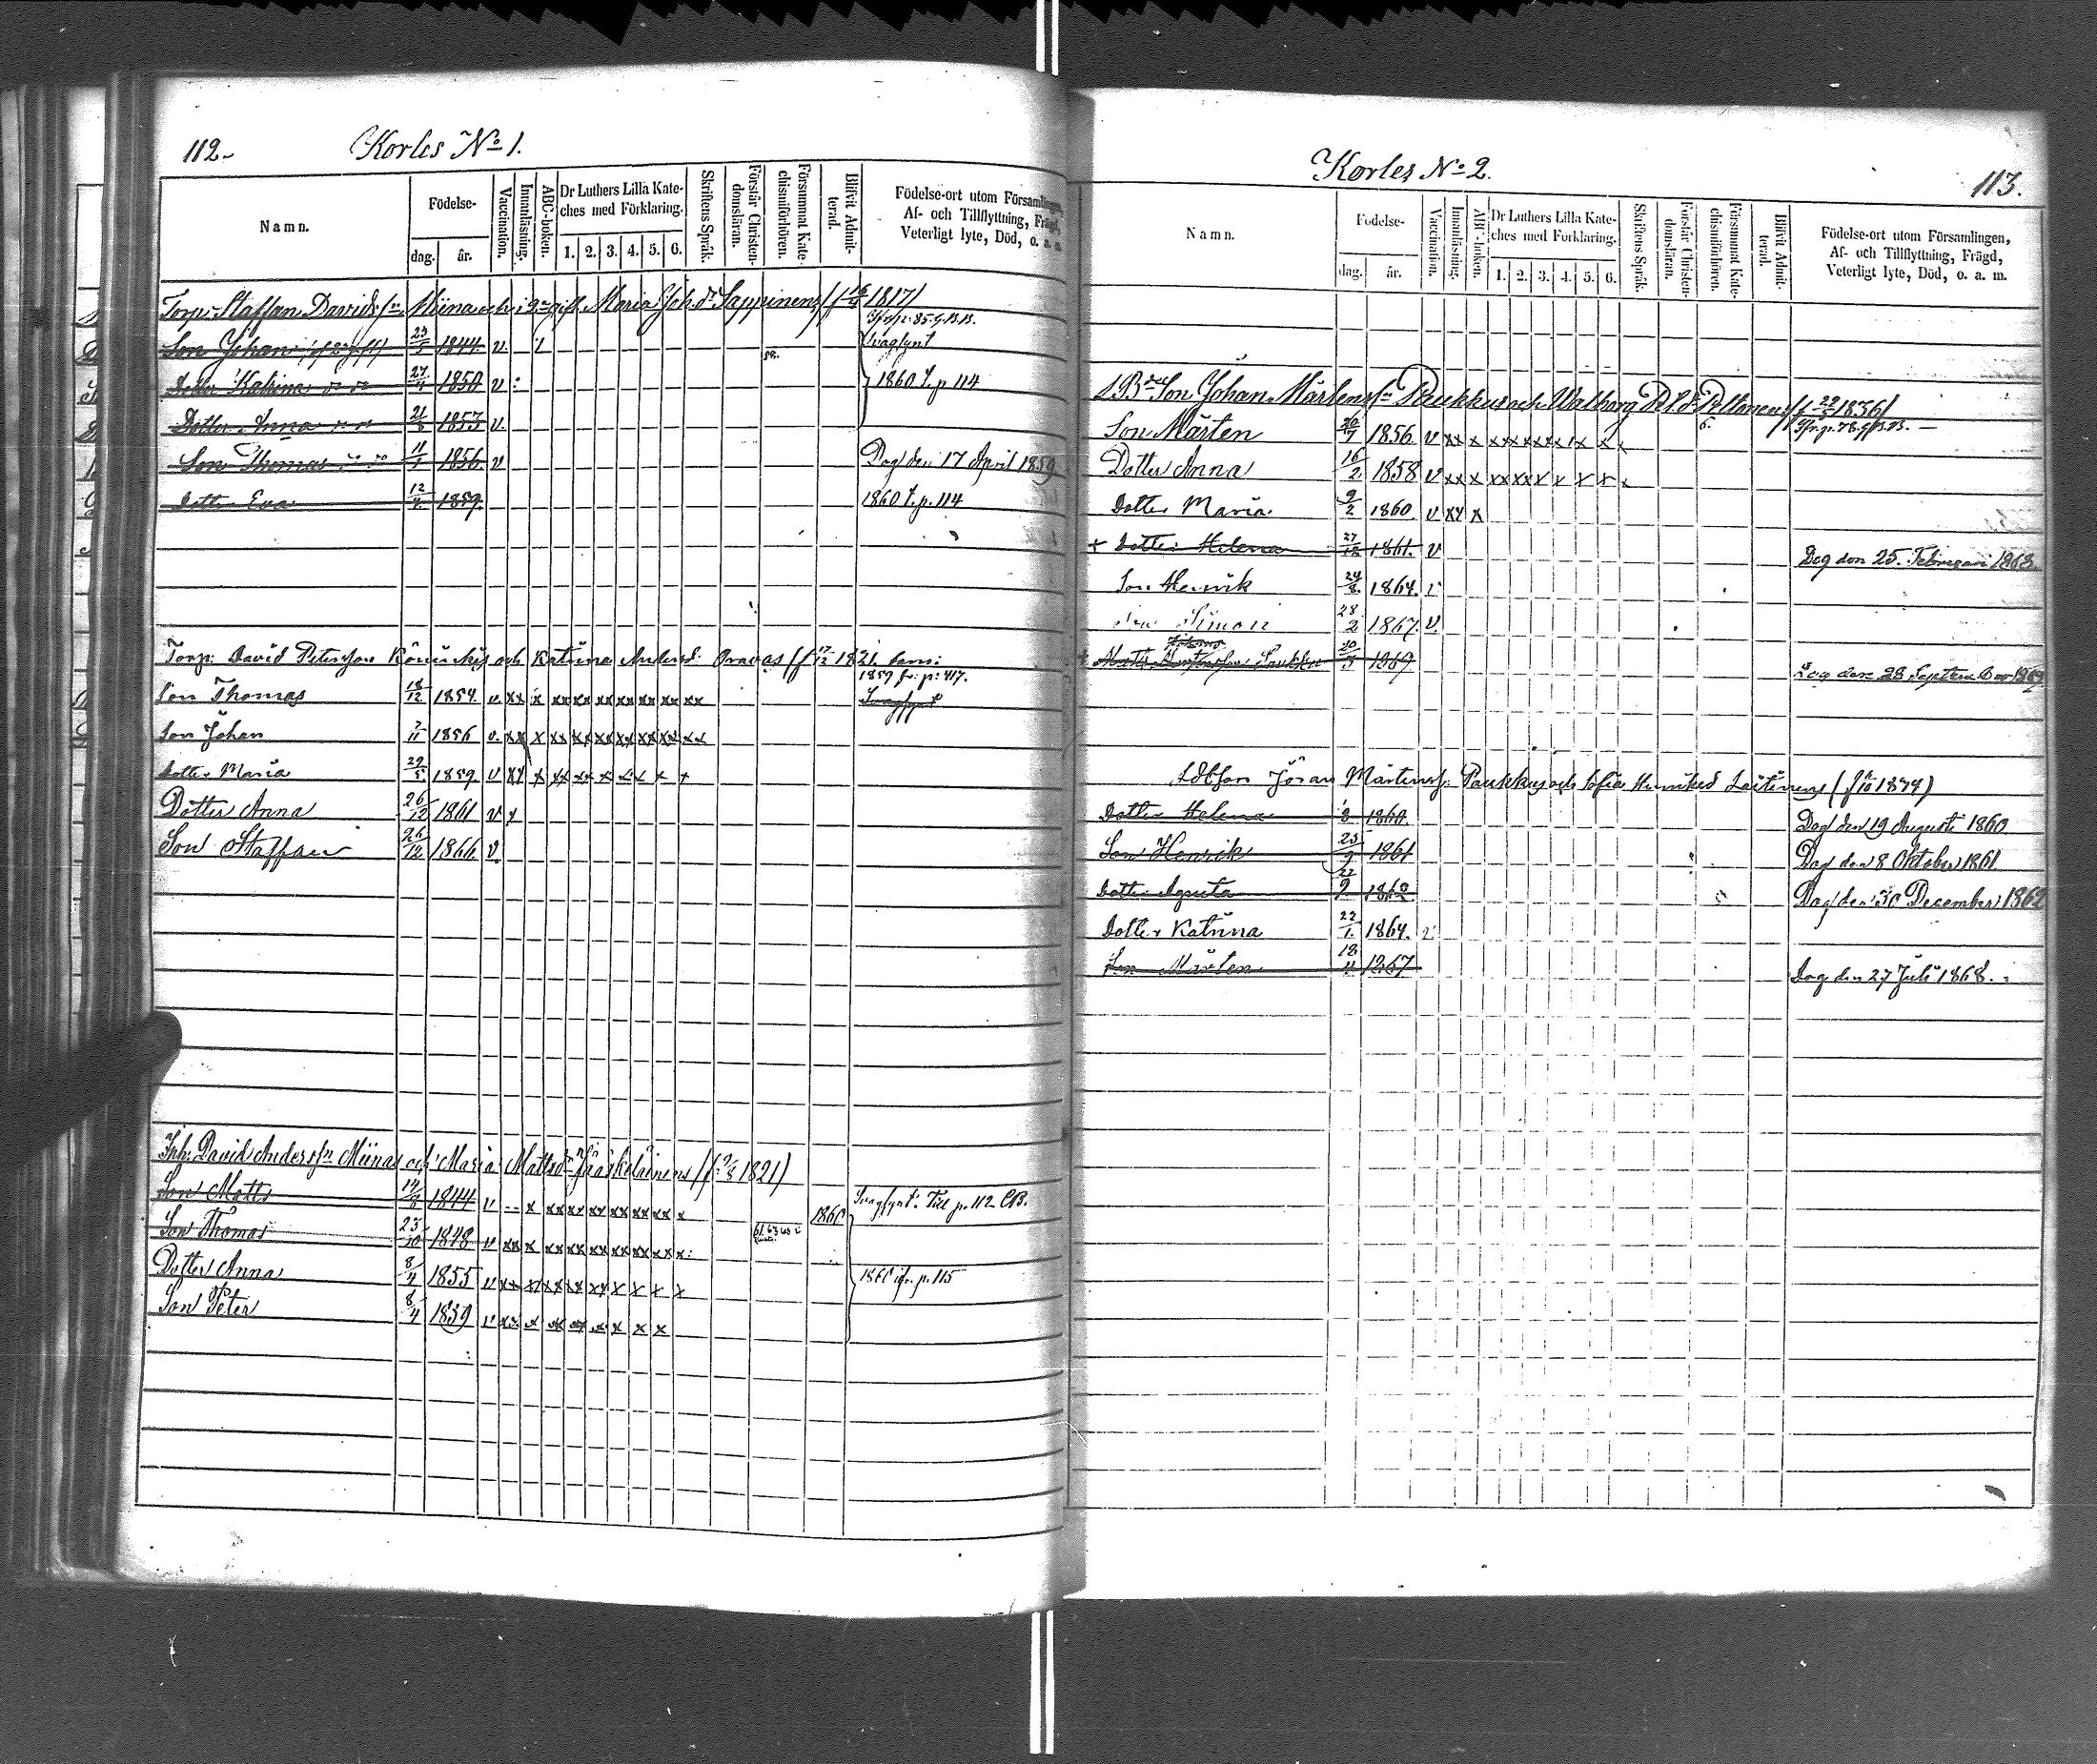 112.
Korles No 1.
Namn.
Födelse-
dag.
år.
Vaccination.
Innanläsning.
ABC-boken.
Dr Luthers Lilla Kate-
ches med Förklaring.
1. 2. 3. 4. 5. 6.
Skriftens Språk.
Förstår Christen-
domsläran.
Försummat Kate-
chismiförhören.
Blifvit Admit-
terad.
Födelse-ort utom Församlingen,
Af- och Tillflyttning, Frägd,
Veterligt lyte, Död, o. a. m.
Torp: Staffan Davidss. Miina och i 2a gift Maria Joh.dr Sappinens (f 1817)
Son Johan 1844. v. Svagsynt
Dotter Katrina 27 1850 v 1860 t. p 114
Dotter Anna 1853 v.
Son Thomas 11 1856. v Dog den 17 April 1859
Dotter Eva 12 1859. 1860 t. p. 114
Torp: David Petersson och Katrina Andersd: Oravas (f 1821.
1859 fr: p: 417.
Son Thomas 18/12 1854. v. xx x xx xx xx xx xx xx xx
Svagsynt
Son Johan 7/11 1856 v. xx x xx xx xx xx xx xx xx
Dotter Maria 29/5 1859 v xx x xx xx x x x x
Dotter Anna 26/12 1861 v x
Son Staffan 26/12 1866. v.
Inh: David Anderss. Miinas och Maria Mattsdr Jääskeläinens (f 1821)
Son Matts 14 1844 v -- x xx xx xx xx xx xx x 1861 Svagsynt. Till p. 112 CB.
Son Thomas 23/10 1848 v xx x xx xx xx xx xx xx x:
Dotter Anna 8/4 1855 v xx x xx xx xx x x x x 1861 fr. p. 115
Son Peter 8/4 1859 v xx x xx xx x x x x
Korles No 2.
113.
Namn.
Födelse-
dag.
år.
Vaccination.
Innanläsning.
ABC-boken.
Dr Luthers Lilla Kate-
ches med Förklaring.
1. 2. 3. 4. 5. 6.
Skriftens Språk.
Förstår Christen-
domsläran.
Försummat Kate-
chismiförhören.
Blifvit Admit-
terad.
Födelse-ort utom Församlingen,
Af- och Tillflyttning, Frägd,
Veterligt lyte, Död, o. a. m.
Son Johan Mårtenss. Paukkus och Walborg Peltonens (f 1836)
Son Mårten 20/7 1856 v xx x xx xx xx x x x x
Dotter Anna 16/2 1858 v xx x xx xx x x x x x
Dotter Maria 9/2 1860. v xx x
+ Dotter Helena 27/12 1861. v Dog den 25. Februari 1868.
Son Henrik 24/8 1864. v
Son Simon 28/2 1867. v.
1869 Dog den 28 September 1869
Johan Mårtenss: Paukkus och Sofia Henriksd Laitinens
Dotter Helena 8 1860. Dog den 19 Augusti 1860
Son Henrik 25/9 1861 Dog den 8 Oktober 1861.
Dotter Agneta 22/9 1862 Dog den 30 December 1862
Dotter Katrina 22/1. 1864. v
Son Mårten 18 1867 Dog den 27 Juli 1868.